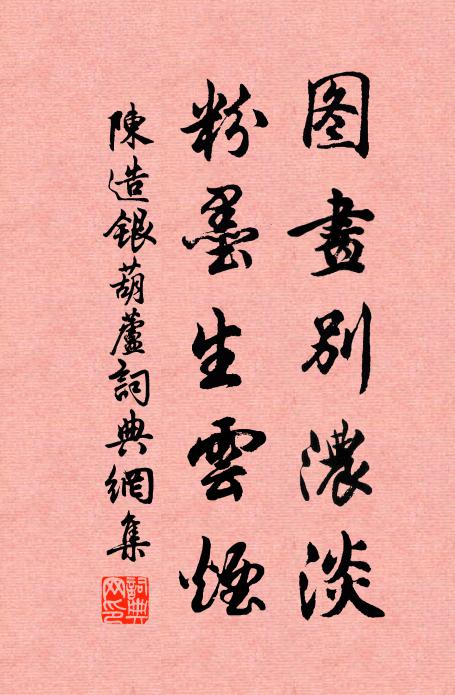 图畫别濃淡
粉墨生雲煙
陳造銀葫蘆詞典網集
詞典
网印